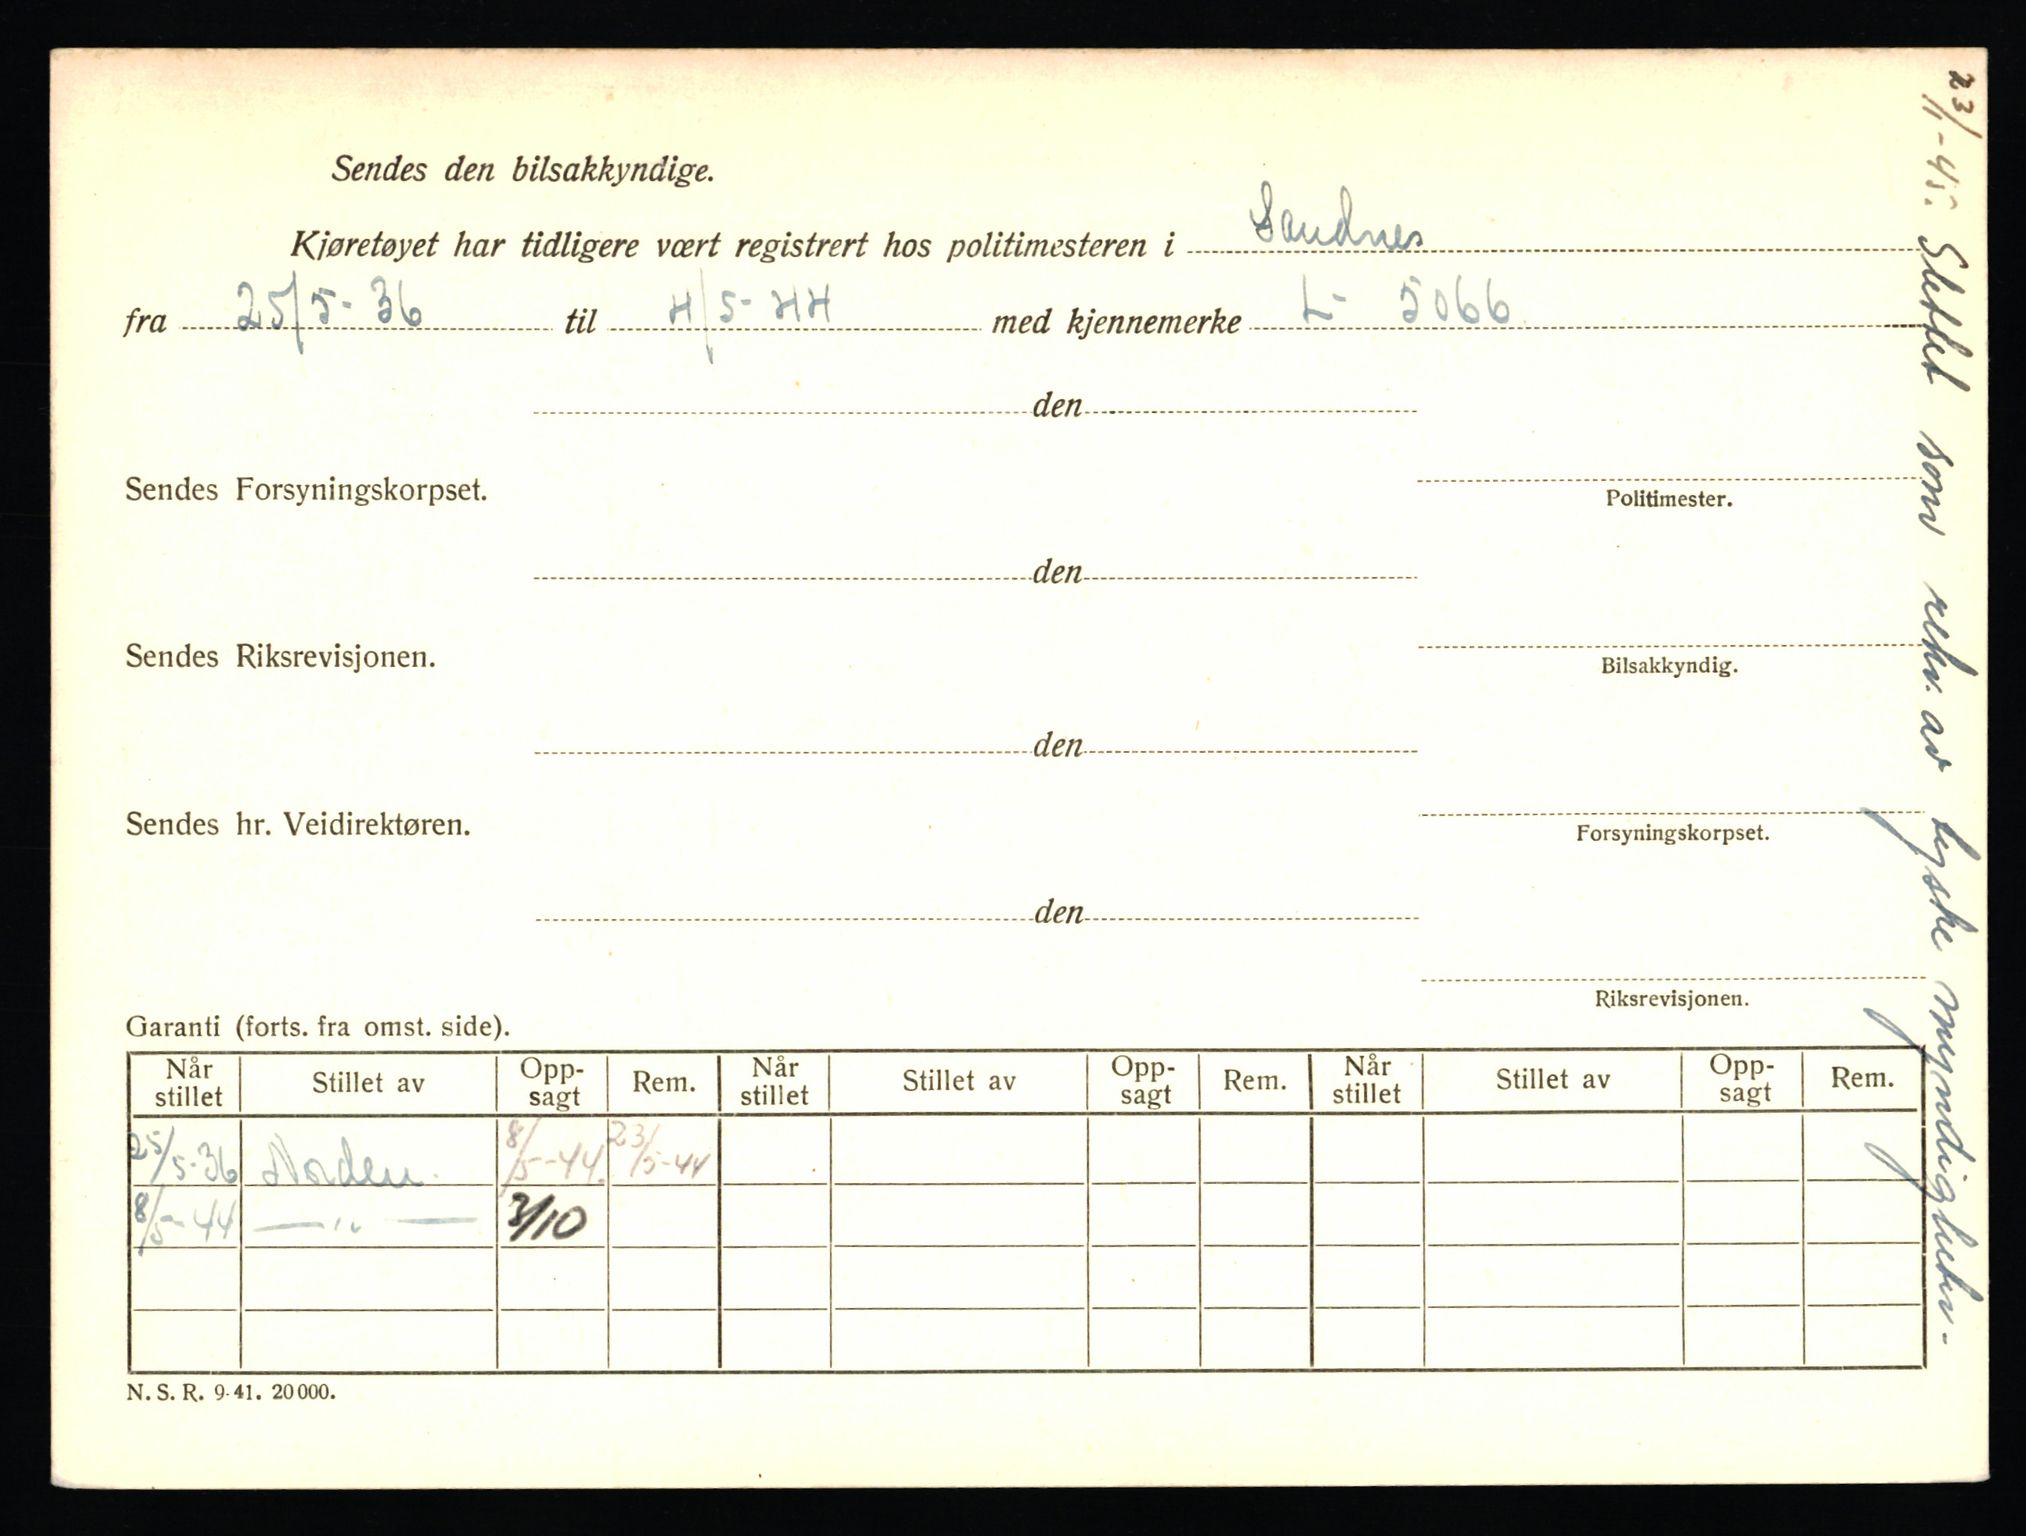 Sendes den bilsakkyndige.
Kjøretøyet har tidligere vært registrert hos politimesteren i Sandnes
fra 25/5-36 til 4/5-44 med kjennemerke L- 5066
den
Sendes Forsyningskorpset.
Politimester.
den
Sendes Riksrevisjonen.
Bilsakkyndig.
den
Sendes hr. Veidirektøren.
Forsyningskorpset.
den
Riksrevisjonen.
Garanti (forts. fra omst. side).
Når stillet Stillet av Opp-sagt Rem. Når stillet Stillet av Opp-sagt Rem. Når stillet Stillet av Opp-sagt Rem.
25/5-36 Norden 8/5-44. 23/5-44
8/5-44 — " — 3/10
N. S. R. 9-41. 20 000.
23/11-45. Slettet som rekv. av tyske myndigheter.